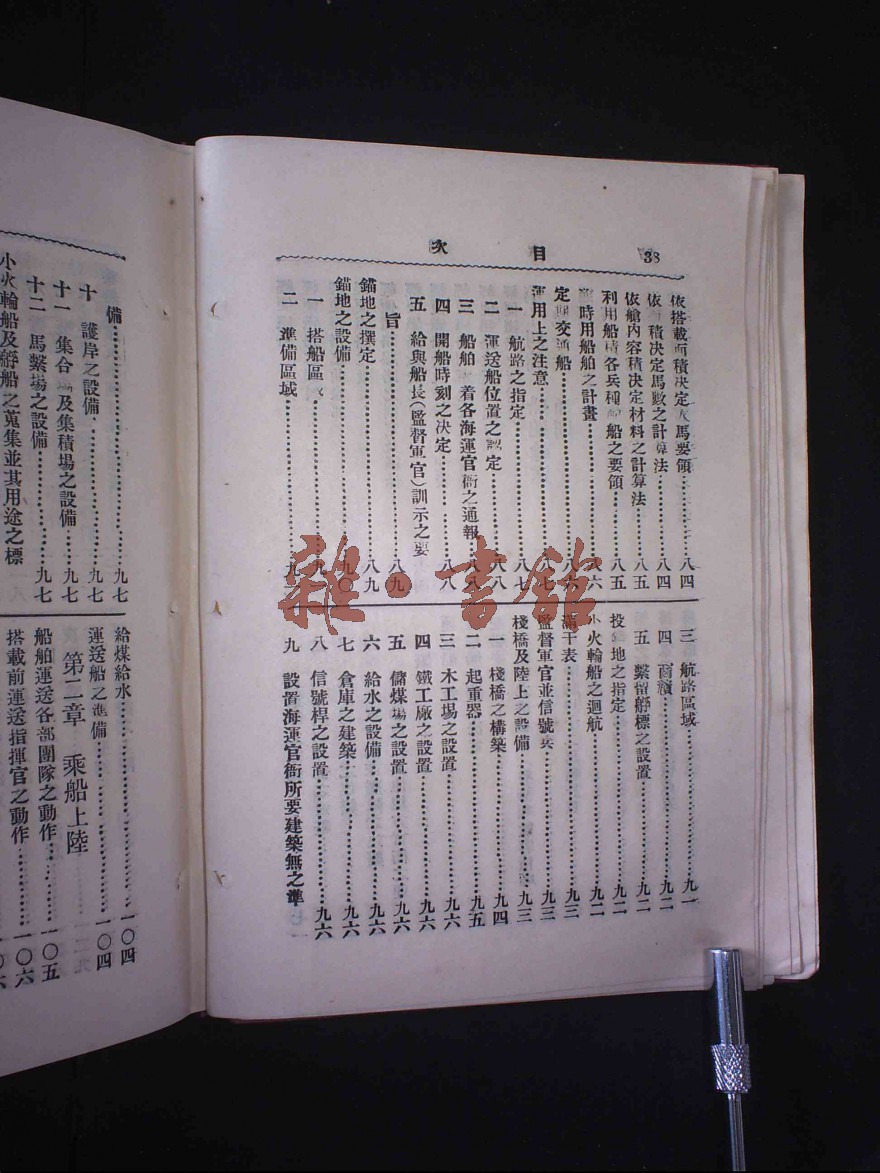 38
目次
依搭載面積決定人馬要領……八四
依面積決定馬數之計算法……八四
依艙內容積決定材料之計算法……八五
利用船積各兵種 船之要領……八五
時用船舶之計畫……八六
定 交 船……八六
運用上之注意……八七
一 航路之指定……八七
二 運送船位置之 定……八八
三 船舶 着各海運官衙之通報……八八
四 開船時刻之決定……八八
五 給與船長(監督軍官)訓示之要
旨……八九
錨地之撰定……八九
錨地之設備……九〇
一 搭船區 ……九
二 準備區域……九
三 航路區域……九一
四 ……九二
五 繫留艀標之設置……九二
投 地之指定……九二
小火輪船之迴航……九二
滿干表……九三
監督軍官並信號兵……九三
棧橋及陸上之設備……九三
一 棧橋之構築……九四
二 起重器……九五
三 木工場之設置……九六
四 鐵工廠之設置……九六
五 儲煤場之設置……九六
六 給水之設備……九六
七 倉庫之建築……九六
八 信號桿之設置……九六
九 設置海運官衙所要建築無之準
備……九七
十 護岸之設備……九七
十一 集合 及集積場之設備……九七
十二 馬繫場之設備……九七
小火輪船及艀船之蒐集並其用途之標
給煤給水……一〇四
運送船之準備……一〇四
第二章 乘船上陸
船舶運送各部團隊之動作……一〇五
搭載前運送指揮官之動作……一〇六
雜·書館